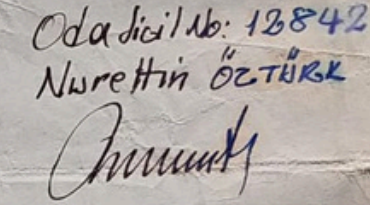 Oda Sicil No: 12842
Nurettin ÖZTÜRK